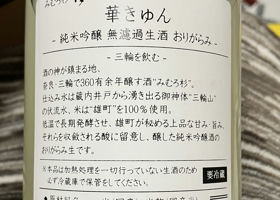 みむろ杉
華きゅん
- 純米吟醸 無濾過生酒 おりがらみ -
- 三輪を飲む -
酒の神が鎮まる地、
奈良・三輪で360有余年醸す酒“みむろ杉”。
仕込み水は蔵内井戸から湧き出る御神体“三輪山”
の伏流水、米は“雄町”を100%使用。
低温で長期発酵させ、雄町が秘める上品な甘み・旨み、
それらを収れんする酸に留意し、醸した純米吟醸酒の
おりがらみ生です。
※本品は加熱処理を一切行っていない生酒のため
必ず冷蔵庫で保管をしてください。
要冷蔵